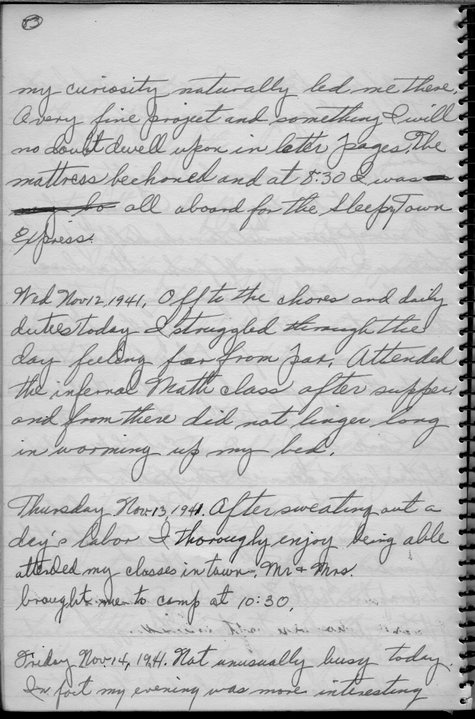 13
my curiosity naturally led me there.
A very fine project and something I will
no doubt dwell upon in later pages. The
mattress beckoned and at 8:30 I was
all aboard for the SleepyTown
Express.
Wed Nov 12, 1941. Off to the chores and daily
duties today I struggled through the
day feeling far from par. Attended
the infernal Math class after supper
and from there did not linger long
in warming up my bed.
Thursday Nov 13, 1941. After sweating out a
day's labor I thorougly enjoy being able
attended my classes in town. Mr & Mrs.
brought me to camp at 10:30.
Friday Nov 14, 1941. Not unusually busy today.
In fact my evening was more interesting